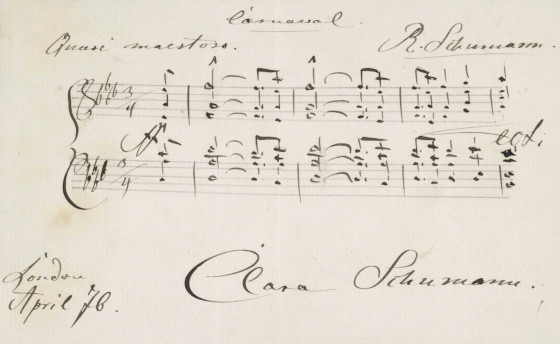 Carnaval.
Quasi maestoso. R. Schumann.
3/4
ff
3/4
ect.
London
April 76.
Clara Schumann.